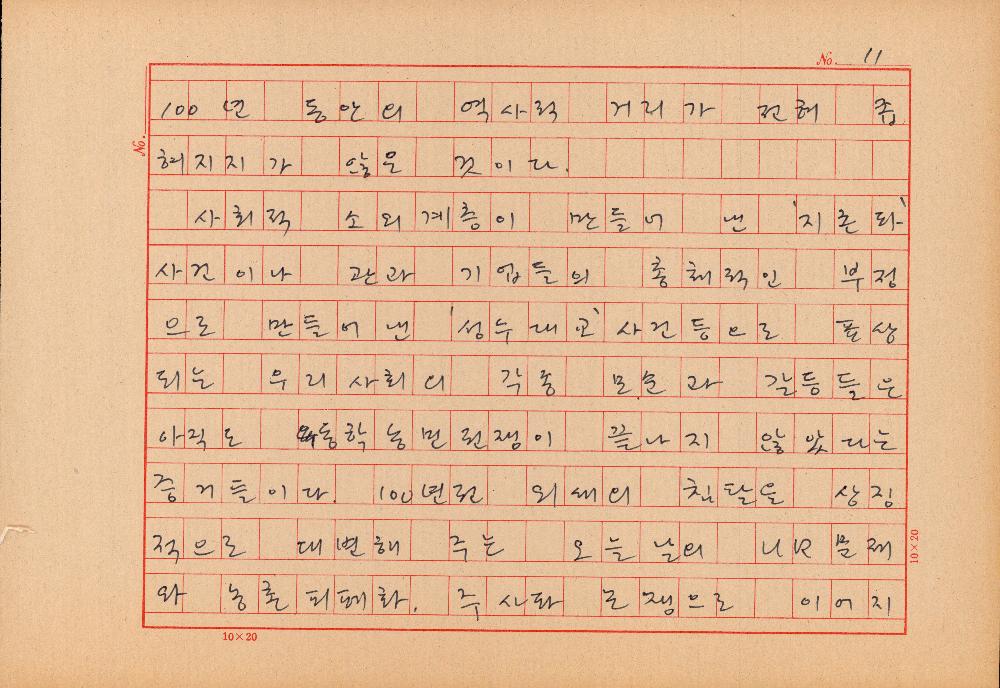 No. 11
No.
100년 동안의 역사적 거리가 전혀 좁
혀지지가 않은 것이다.
사회적 소외계층이 만들어 낸 '지존파'
사건이나 관과 기업들의 총체적인 부정
으로 만들어 낸 '성수대교' 사건등으로 표상
되는 우리 사회의 각종 모순과 갈등들은
아직도 동학농민전쟁이 끝나지 않았다는
증거들이다. 100년전 외세의 침탈을 상징
적으로 대변해 주는 오늘날의 UR문제
와 농촌피폐화. 주사파 논쟁으로 이어지
10×20
10×20